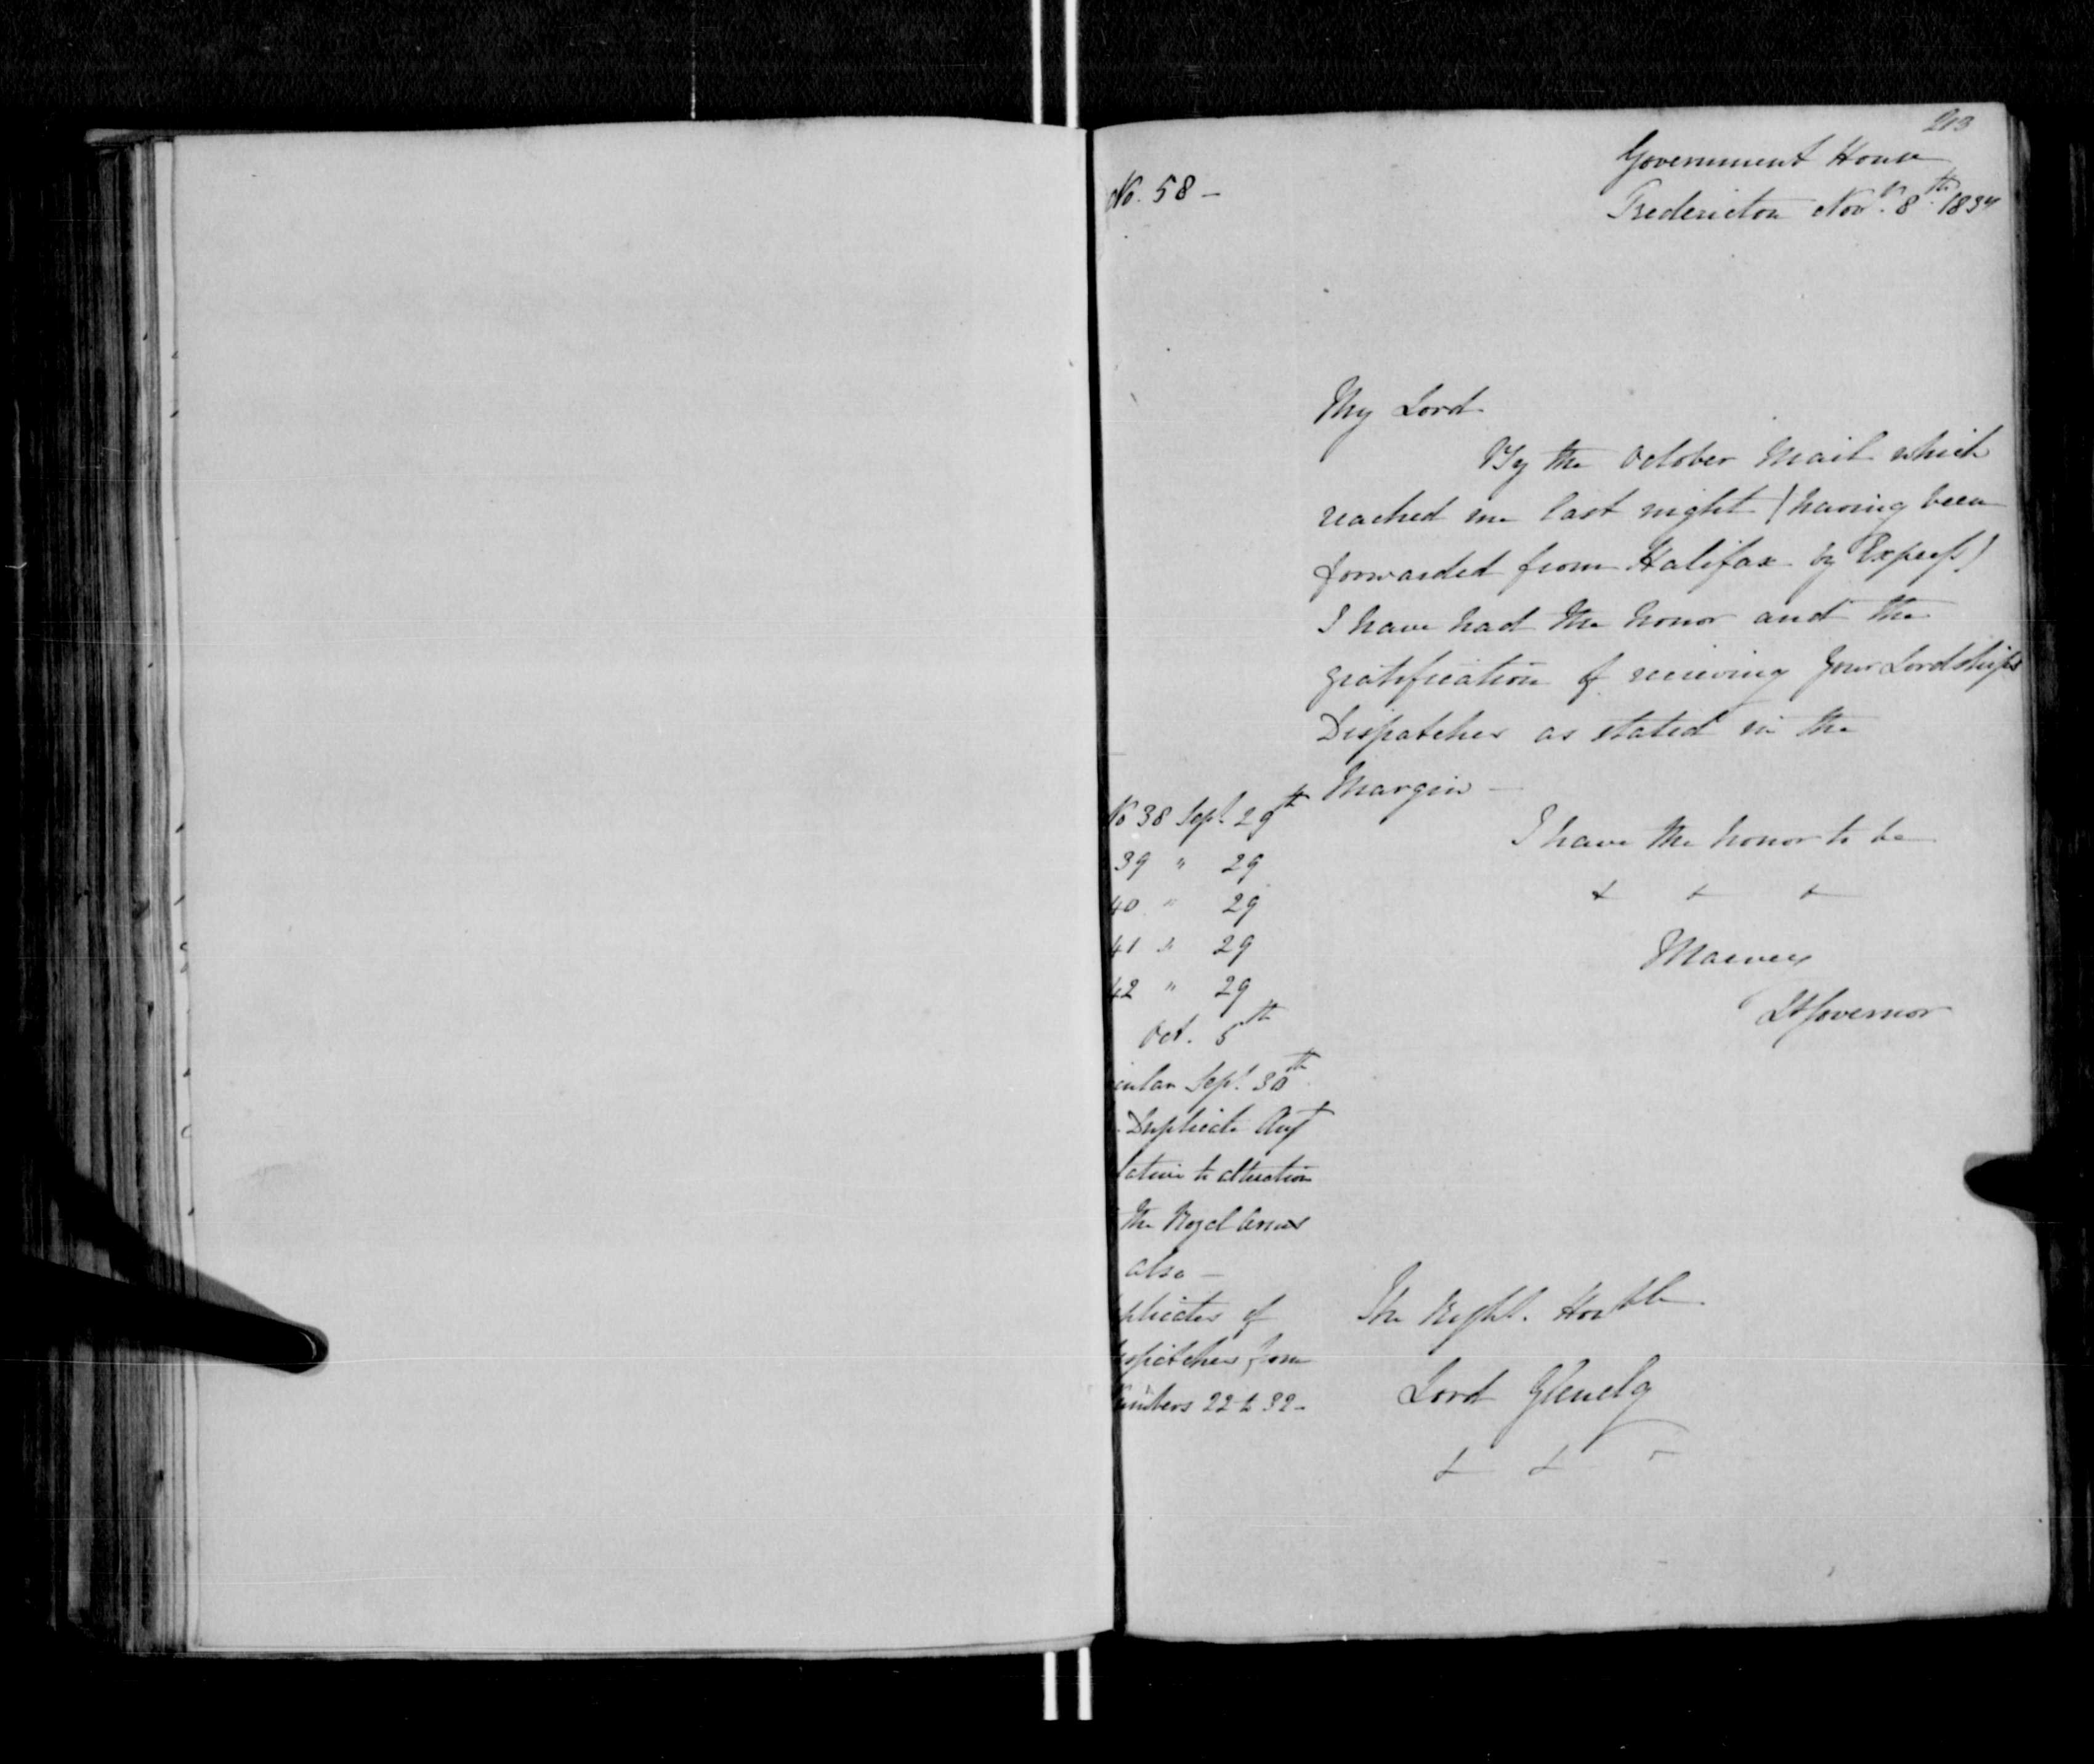 213
Government House
No. 58 - Fredericton Novr. 8th 1837
My Lord
By the October Mail which
reached me last night (having been
forwarded from Halifax by Express)
I have had the honor and the
gratification of receiving Your Lordships
Dispatches as stated in the
Margin -
No 38 Sept. 29th
39 " 29
40 " 29
41 " 29
42 " 29
Oct. 5th
cular Sept. 30th
Duplicate Augt
lative to alteration
the Royal Arms
also -
plicates of
spatches from
umbers 22 to 32 -
I have the honor to be
+ + +
Lt Governor
The Right. Honble
Lord Glenelg
+ + +